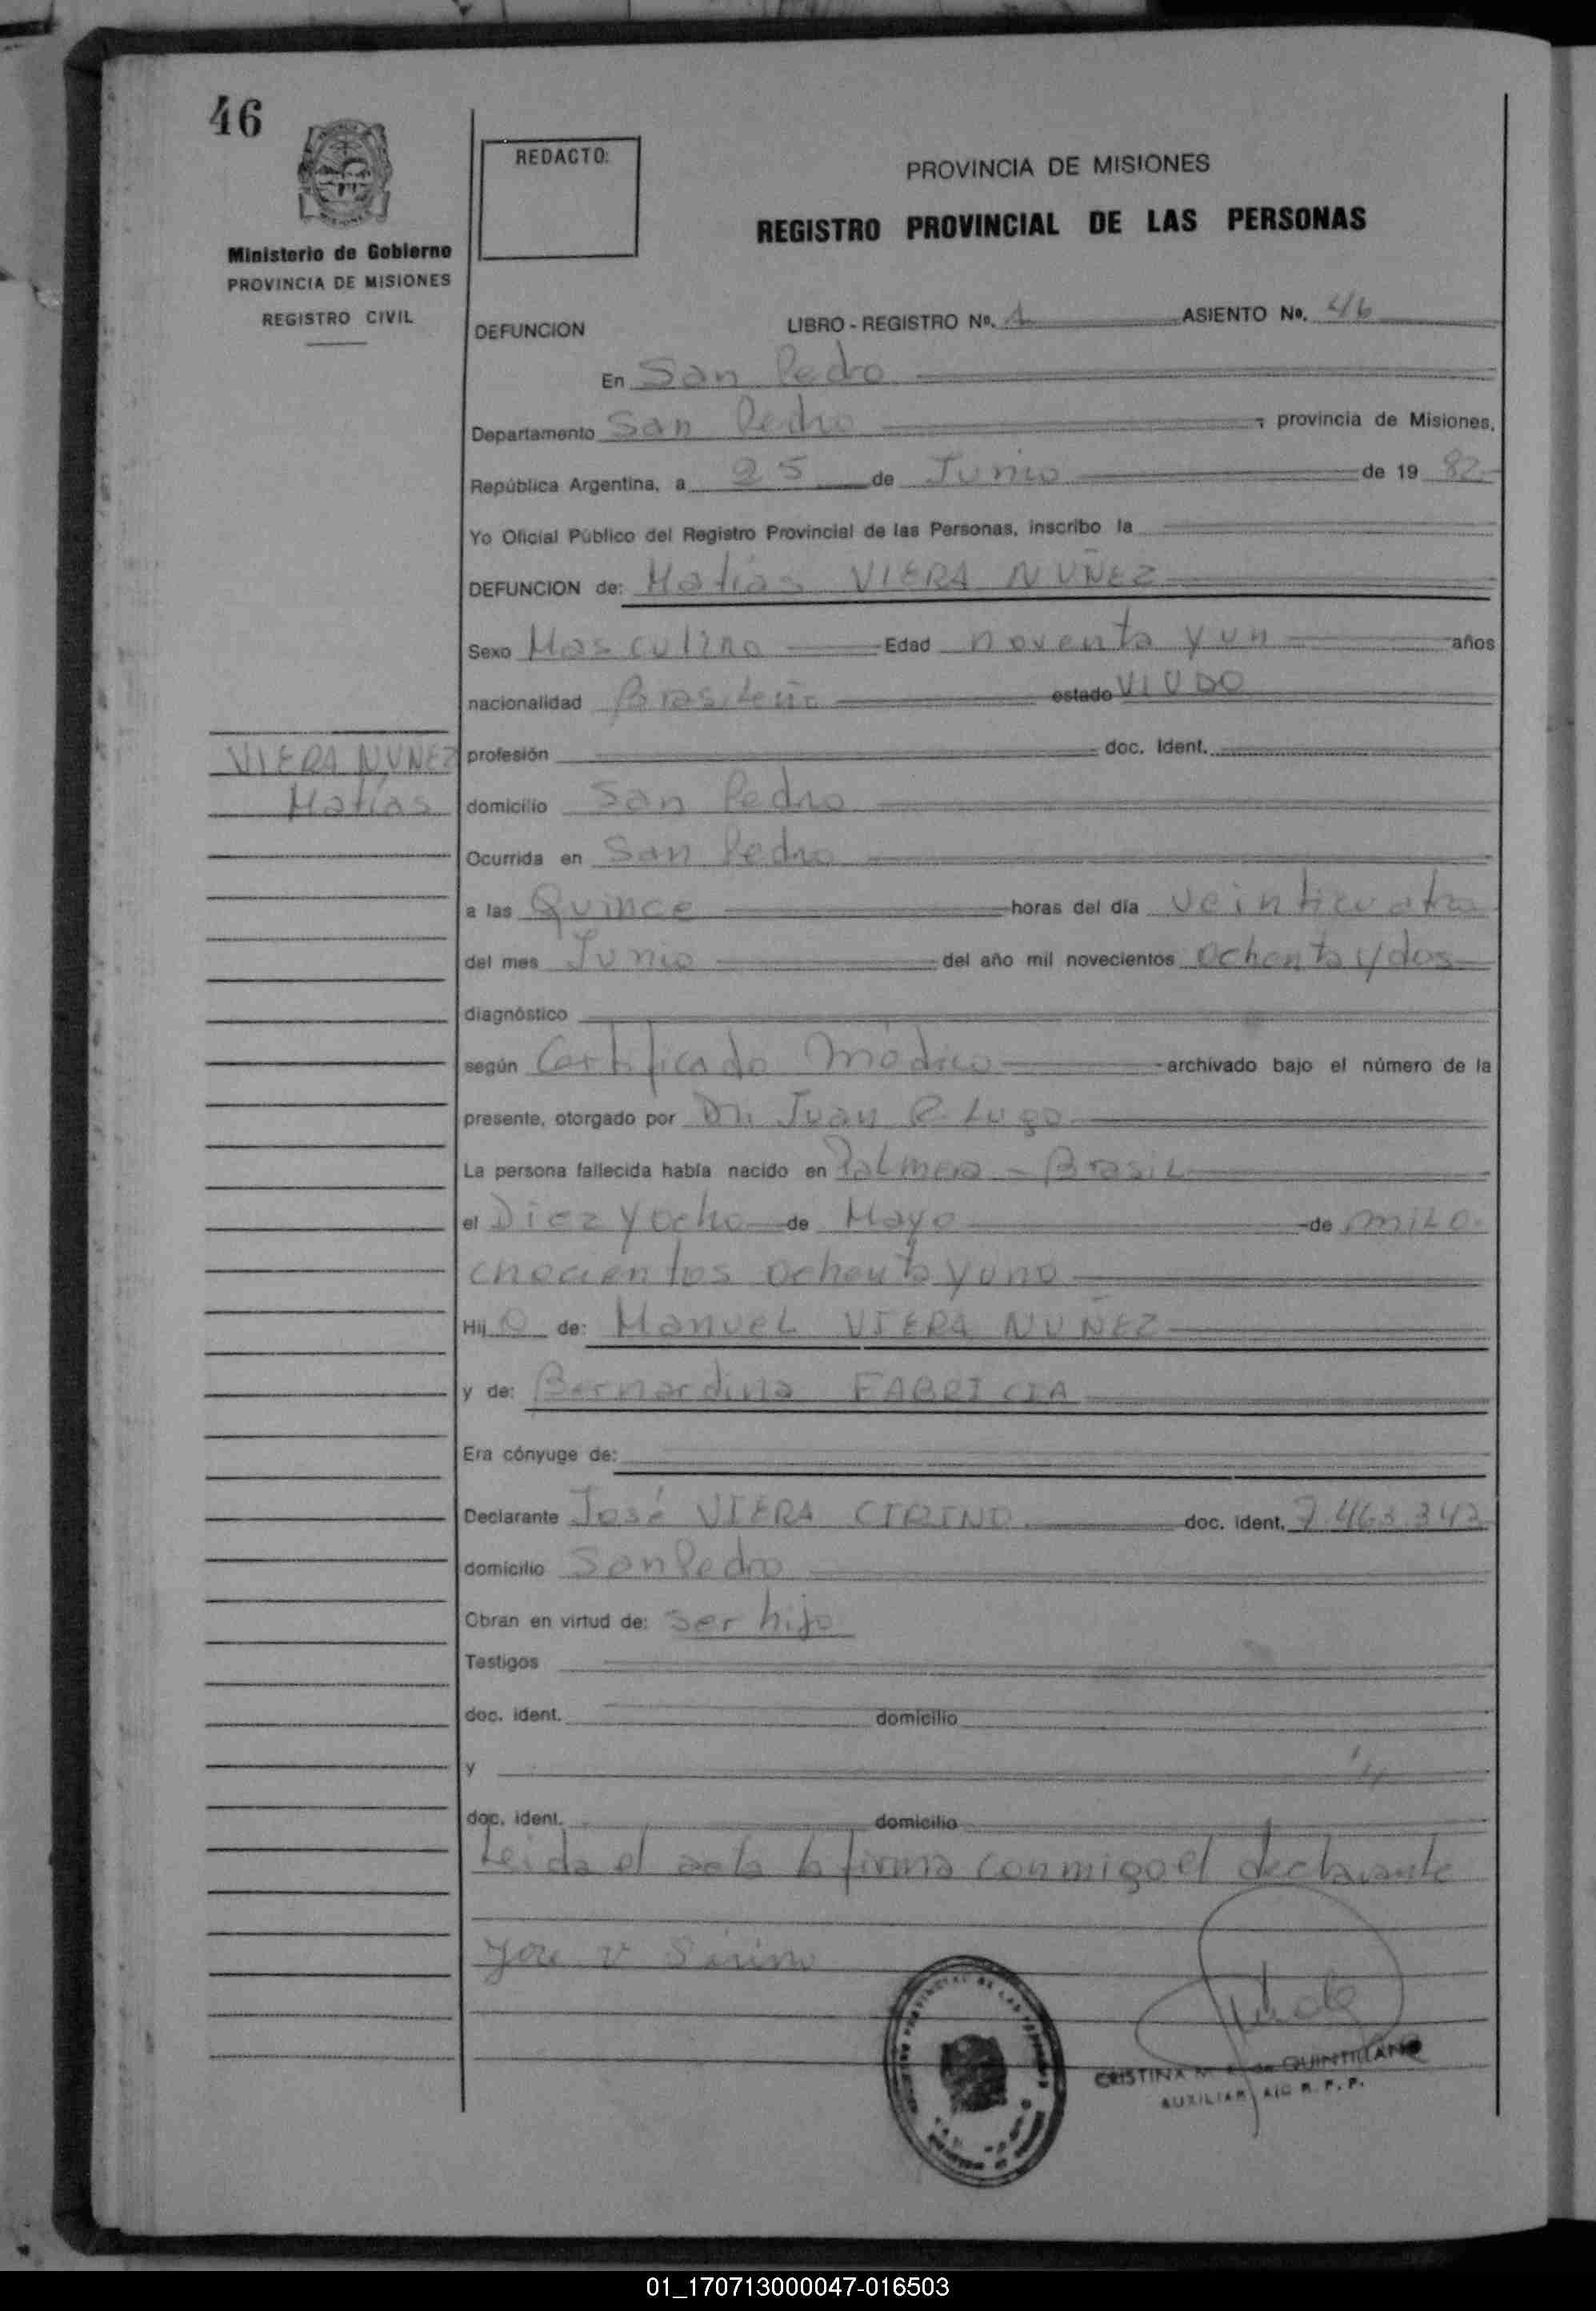 46
REDACTO:
Ministerio de Gobierno
PROVINCIA DE MISIONES
REGISTRO CIVIL
PROVINCIA DE MISIONES
REGISTRO PROVINCIAL DE LAS PERSONAS
DEFUNCION LIBRO - REGISTRO Nº. 1 ASIENTO Nº. 46
En San Pedro
Departamento San Pedro, provincia de Misiones,
República Argentina, a 25 de Junio de 19 82
Yo Oficial Público del Registro Provincial de las Personas, inscribo la
DEFUNCION de: Matías VIERA NUÑEZ
Sexo Masculino Edad noventa y un años
nacionalidad Brasileño estado VIUDO
VIERA NUNEZ
Matías
profesión doc. Ident.
domicilio San Pedro
Ocurrida en San Pedro
a las Quince horas del día veinticuatro
del mes Junio del año mil novecientos ochenta y dos
diagnóstico
según Certificado Médico archivado bajo el número de la
presente, otorgado por Dr. Juan R. Lugo
La persona fallecida había nacido en Palmera - Brasil
el Diez y ocho de Mayo de mil o.
chocientos ochenta y uno
Hij o de: Manuel VIERA NUÑEZ
y de: Bernardina FABRICIA
Era cónyuge de:
Declarante José VIERA CIRINO doc. ident. 7.463.343
domicilio San Pedro
Obran en virtud de: ser hijo
Testigos
doc. ident. domicilio
y
doc. ident. domicilio
Leida el acta la firma conmigo el declarante
Jose V Sirino
CRISTINA de QUINTILLAN
AUXILIAR A/C R. P. P.
01_170713000047-016503